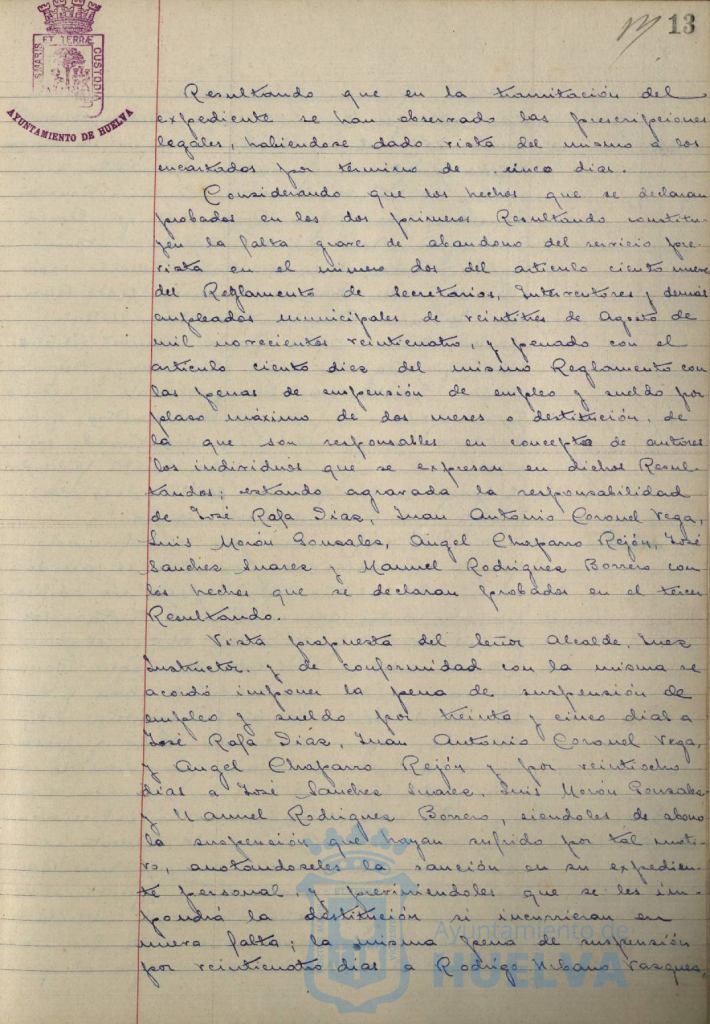 13
SMARIS ET TERRÆ CUSTODIA
AYUNTAMIENTO DE HUELVA
Resultando que en la tramitación del
expediente se han observado las prescripciones
legales, habiendose dado vista del mismo a los
encartados por termino de cinco dias.
Considerando que los hechos que se declaran
probados en los dos primeros Resultando constitu-
yen la falta grave de abandono del servicio pre-
vista en el número dos del articulo ciento nueve
del Reglamento de Secretarios, Interventores y demás
empleados municipales de veintitres de Agosto de
mil novecientos veinticuatro, y penado con el
articulo ciento diez del mismo Reglamento con
las penas de suspensión de empleo y sueldo por
plazo máximo de dos meses o destitución, de
la que son responsables en concepto de autores
los individuos que se expresan en dichos Resul-
tandos; estando agravada la responsabilidad
de José Rafa Diaz, Juan Antonio Coronel Vega,
Luis Morón Gonzalez, Angel Chaparro Rejón, José
Sanchez Suarez y Manuel Rodriguez Borrero con
los hechos que se declaran probados en el tercer
Resultando.
Vista propuesta del Señor Alcalde, Juez
Instructor, y de conformidad con la misma se
acordó imponer la pena de suspensión de
empleo y sueldo por treinta y cinco dias a
José Rafa Diáz, Juan Antonio Coronel Vega,
y Angel Chaparro Rejón y por veintiocho
dias a José Sanchez Suarez, Luis Morón Gonzalez
y Manuel Rodriguez Borrero, siendoles de abono
la suspensión que hayan sufrido por tal moti-
vo, anotándoseles la sanción en su expedien-
te personal, y previniendoles que se les im-
pondrá la destitución si incurrieran en
nueva falta; la misma pena de suspensión
por veinticuatro dias a Rodrigo Urbano Vazquez,
Ayuntamiento de
HUELVA